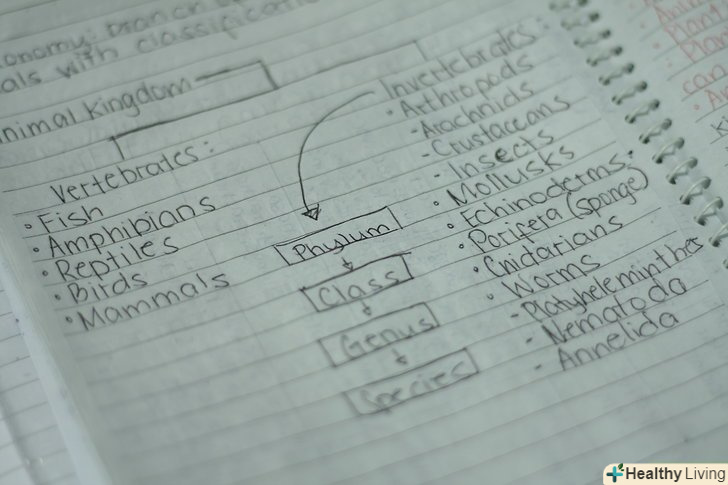 onomy: branch
als with classificati
nimal Kingdom
Vertebrates:
• Fish
• Amphibians
• Reptiles
• Birds
• Mammals
Phylum
Class
Genus
Species
Invertebrates:
• Arthropods
- Arachnids
- Crustaceans
- Insects
• Mollusks
• Echinoderms.
• Porifera (sponge)
• Cnidarians
• Worms
- Platyheleminthes
- Nematoda
- Annelida
can
Healthy Living